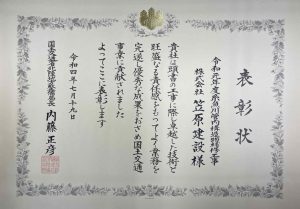 表彰状
令和元年度奈良川管内構造物修繕工事
株式会社 笠原建設 様
貴社は頭書の工事に際し卓越した技術と
旺盛なる責任感をもってよく業務を
完遂し優秀な成果をおさめ国土交通
事業に貢献されました
よってここに表彰します
令和四年七月十九日
国土交通省北陸地方整備局長 内藤正彦